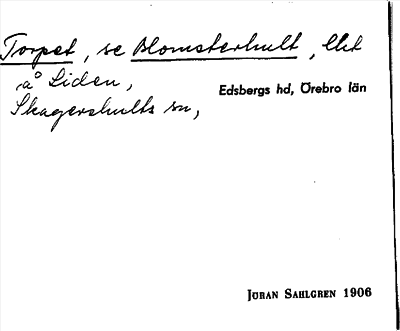 Torpet, se Blomsterhult, lht
på Liden,
Edsbergs hd, Örebro län
Skagershults sn,
JÖRAN SAHLGREN 1906